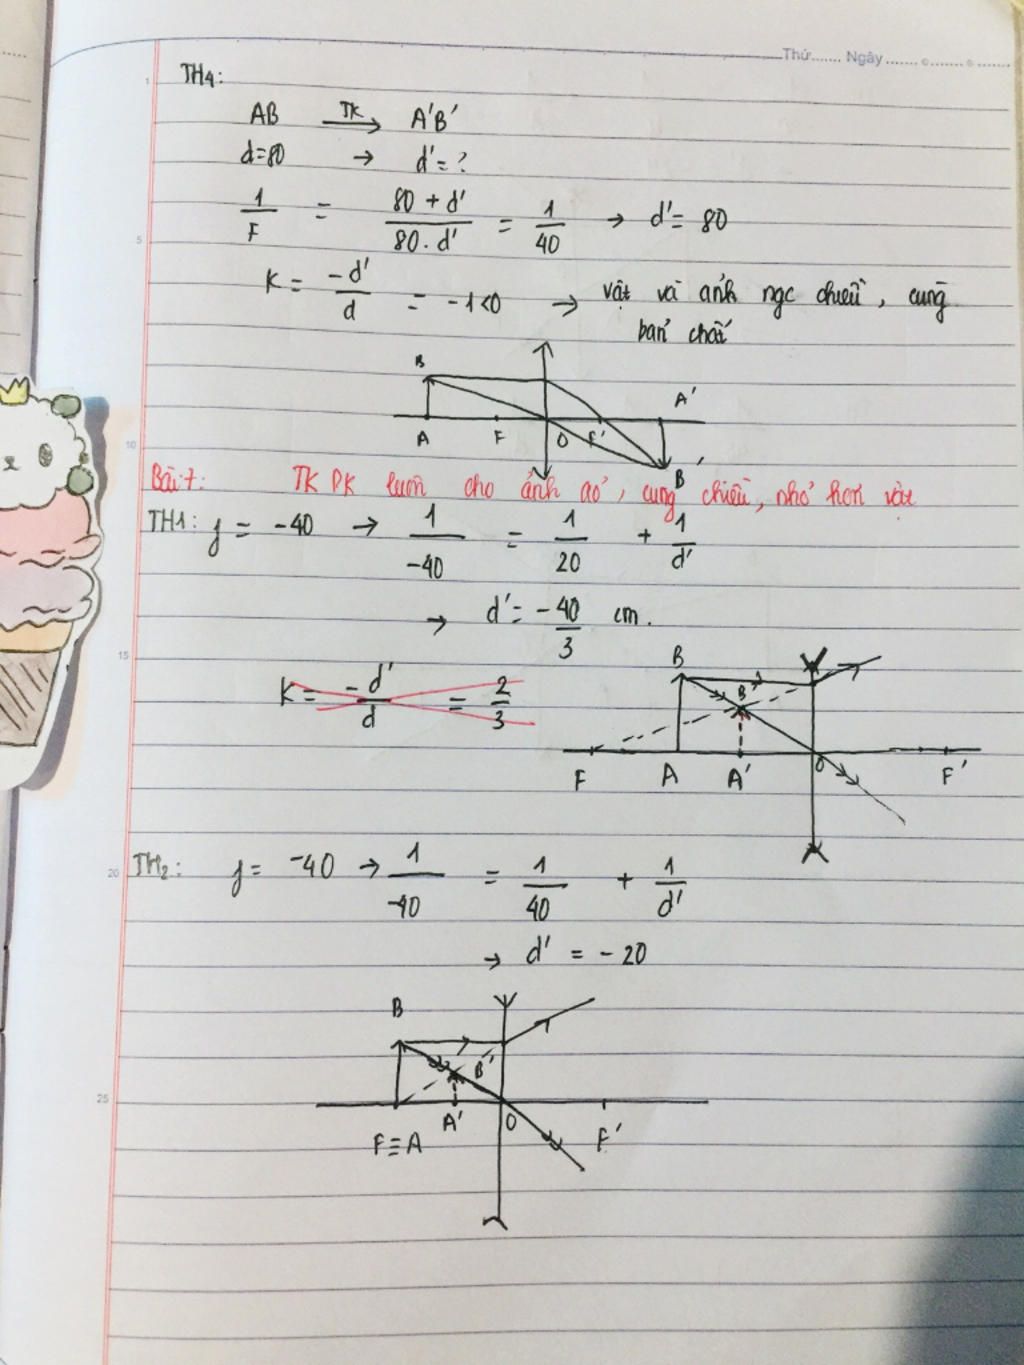 Thứ....... Ngày
TH4:
AB TK→ A'B'
d=80 → d'= ?
1/F = (80 + d')/(80. d') = 1/40 → d'= 80
K = -d'/d = -1<0 → vật và ảnh ngc chiều, cùng
bản chất
B A'
A F O F'
B'
Bài 7: TK PK luôn cho ảnh ảo, cùng chiều, nhỏ hơn vật
TH1: f = -40 → 1/-40 = 1/20 + 1/d'
→ d' = -40/3 cm.
K = -d'/d = 2/3
B B'
F A A' O F'
TH2: f = -40 → 1/-40 = 1/40 + 1/d'
→ d' = -20
B B'
F≡A A' O F'
1
5
10
15
20
25